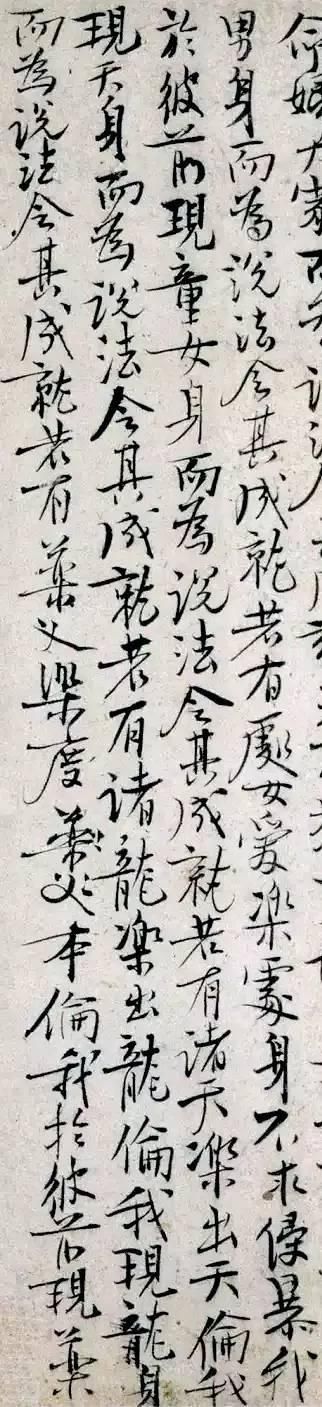 命婦大家而為說法令其成就
男身而為說法令其成就若有處女愛樂處身不求侵暴我
於彼前現童女身而為說法令其成就若有諸天樂出天倫我
現天身而為說法令其成就若有諸龍樂出龍倫我現龍身
而為說法令其成就若有藥叉樂度藥叉本倫我於彼前現藥